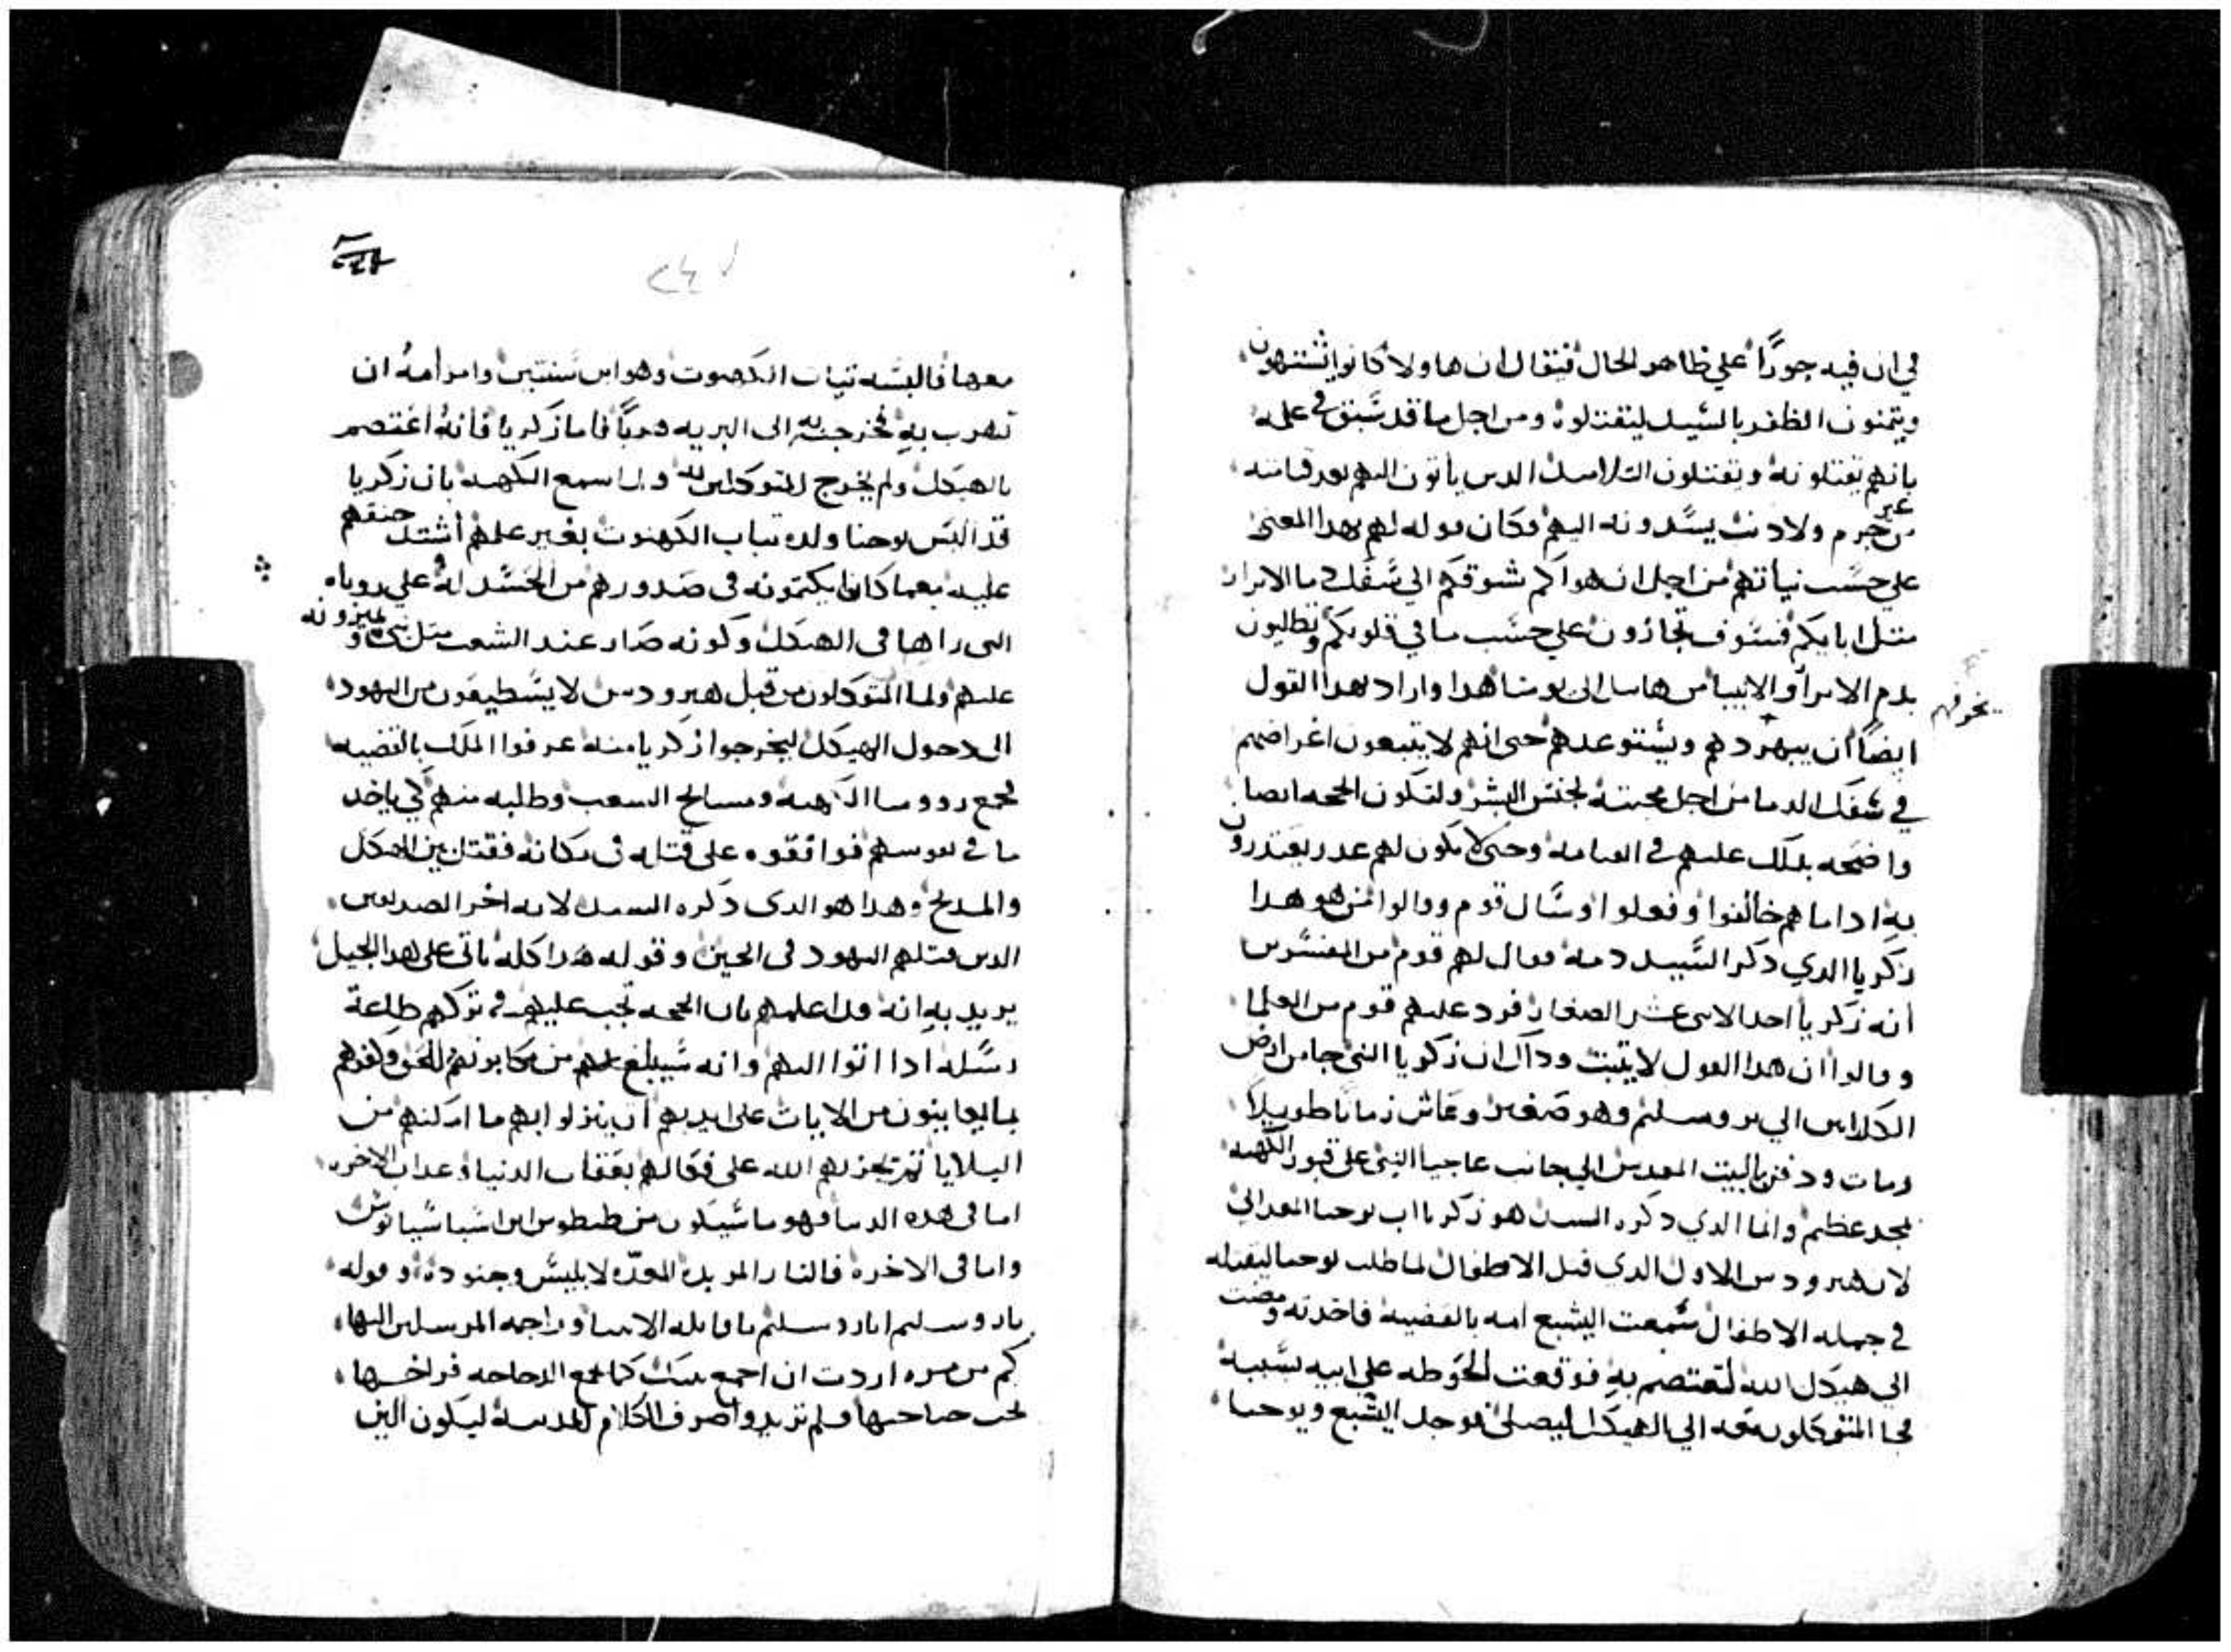 في ان فيه جورًا علي ظاهر الحال فيقال ان هاولا كانوا يشتهون
ويتمنون الظفر بالسيد ليقتلوه ومن اجل ما قد سبق في علمه
بانهم يقتلونه ويقتلون التلاميد الدين ياتون اليهم بعد قيامته
من غير جرم ولا دنب يسدونه اليهم فكان قوله لهم بهدا المعنى
علي حسب نياتهم من اجل انه هوداكم شوقكم الي سفك دما الابرار
متل ابايكم فسوف تجازون علي حسب ما في قلوبكم وتطالبون
بدم الابرار والانبيا من هابيل الى يومنا هدا واراد بهدا القول
تخوفهم
ايضًا ان يبهردهم ويستوعدهم حتى انهم لا يتبعون اغراضهم
في سفك الدما من اجل محبته لجنس البشر ولتكون الحجه ايضا
واضحه بدلك عليهم في القيامه وحتى لا يكون لهم عدر يعتدرون
به ادا ما هم خالفوا وفعلوا وسال قوم وقالوا من هو هدا
زكريا الدي دكر السيد دمه فقال لهم قوم من المفسرين
انه زكريا احد الاتنى عشر الصغار فرد عليهم قوم من العلما
وقالوا ان هدا القول لا يتبت وداك ان زكريا النبى جا من ارض
الكلدانين الي يروسليم وهو صغير وعاش زمانًا طويلًا
ومات ودفن بالبيت المقدس الي جانب عاجيا النبى على قبور الكهنه
بمجد عظيم وانما الدي دكره السيد هو زكريا اب يوحنا المعمدانى
لان هيرودس الاول الدى قتل الاطفال لما طلب يوحنا ليقتله
في جمله الاطفال سمعت اليشبع امه بالقضيه فاخدته ومضت
الي هيكل الله لتعتصم به فوقعت الحوطه على ابيه بسببه
فجا المتوكلون معه الي الهيكل ليصلى فوجد اليشبع ويوحنا
٢٤٧
معها فالبسه تياب الكهنوت وهو ابن سنتين وامر امه ان
تهرب به فخرجت به الى البريه هربًا فاما زكريا فانه اعتصم
بالهيكل ولم يخرج للمتوكلين به ولما سمع الكهنه بان زكريا
قد البس يوحنا ولده تياب الكهنوت بغير علمهم اشتد حنقهم
عليه بعما كانوا يكتمونه فى صدورهم من الحسد له علي روياه
التى راها فى الهيكل وكونه صار عند الشعب متل نبى ويميزونه
عليهم ولما المتوكلون من قبل هيرودس لا يستطيعون من اليهود
الى دخول الهيكل ليخرجوا زكريا منه عرفوا الملك بالقضيه
فجمع رووسا الكهنه ومسايخ الشعب وطلبه منهم كي ياخد
ما في نفوسهم فوافقوه على قتله فى مكانه فقتل بين الهيكل
والمدبح وهدا هو الدى دكره السيد لانه اخر الصديقين
الدين قتلهم اليهود فى الحين وقوله هدا كله ياتى على هدا الجيل
يريد به انه قد اعلمهم بان الحجه تجب عليهم في تركهم طاعة
رسله ادا اتوا اليهم وانه سيبلغ بهم من مكابرتهم للحق وكفرهم
بما يعاينون من الايات على ايديهم ان ينزلوا بهم ما امكنهم من
البلايا تم يجزيهم الله على فعالهم بعقاب الدنيا وعداب الاخره
اما فى هده الدنيا فهو ما سيكون من طيطوس ابن اسباسيانوس
واما فى الاخره فالنار الموبده المعدّه لابليس وجنوده وقوله
يا يروسليم يا يروسليم يا قاتله الانبيا وراجمه المرسلين اليها
كم من مره اردت ان اجمع بنيك كما تجمع الدجاجه فراخها
تحت جناحيها فلم تريدوا صرف الكلام للمدينه ليكون الين